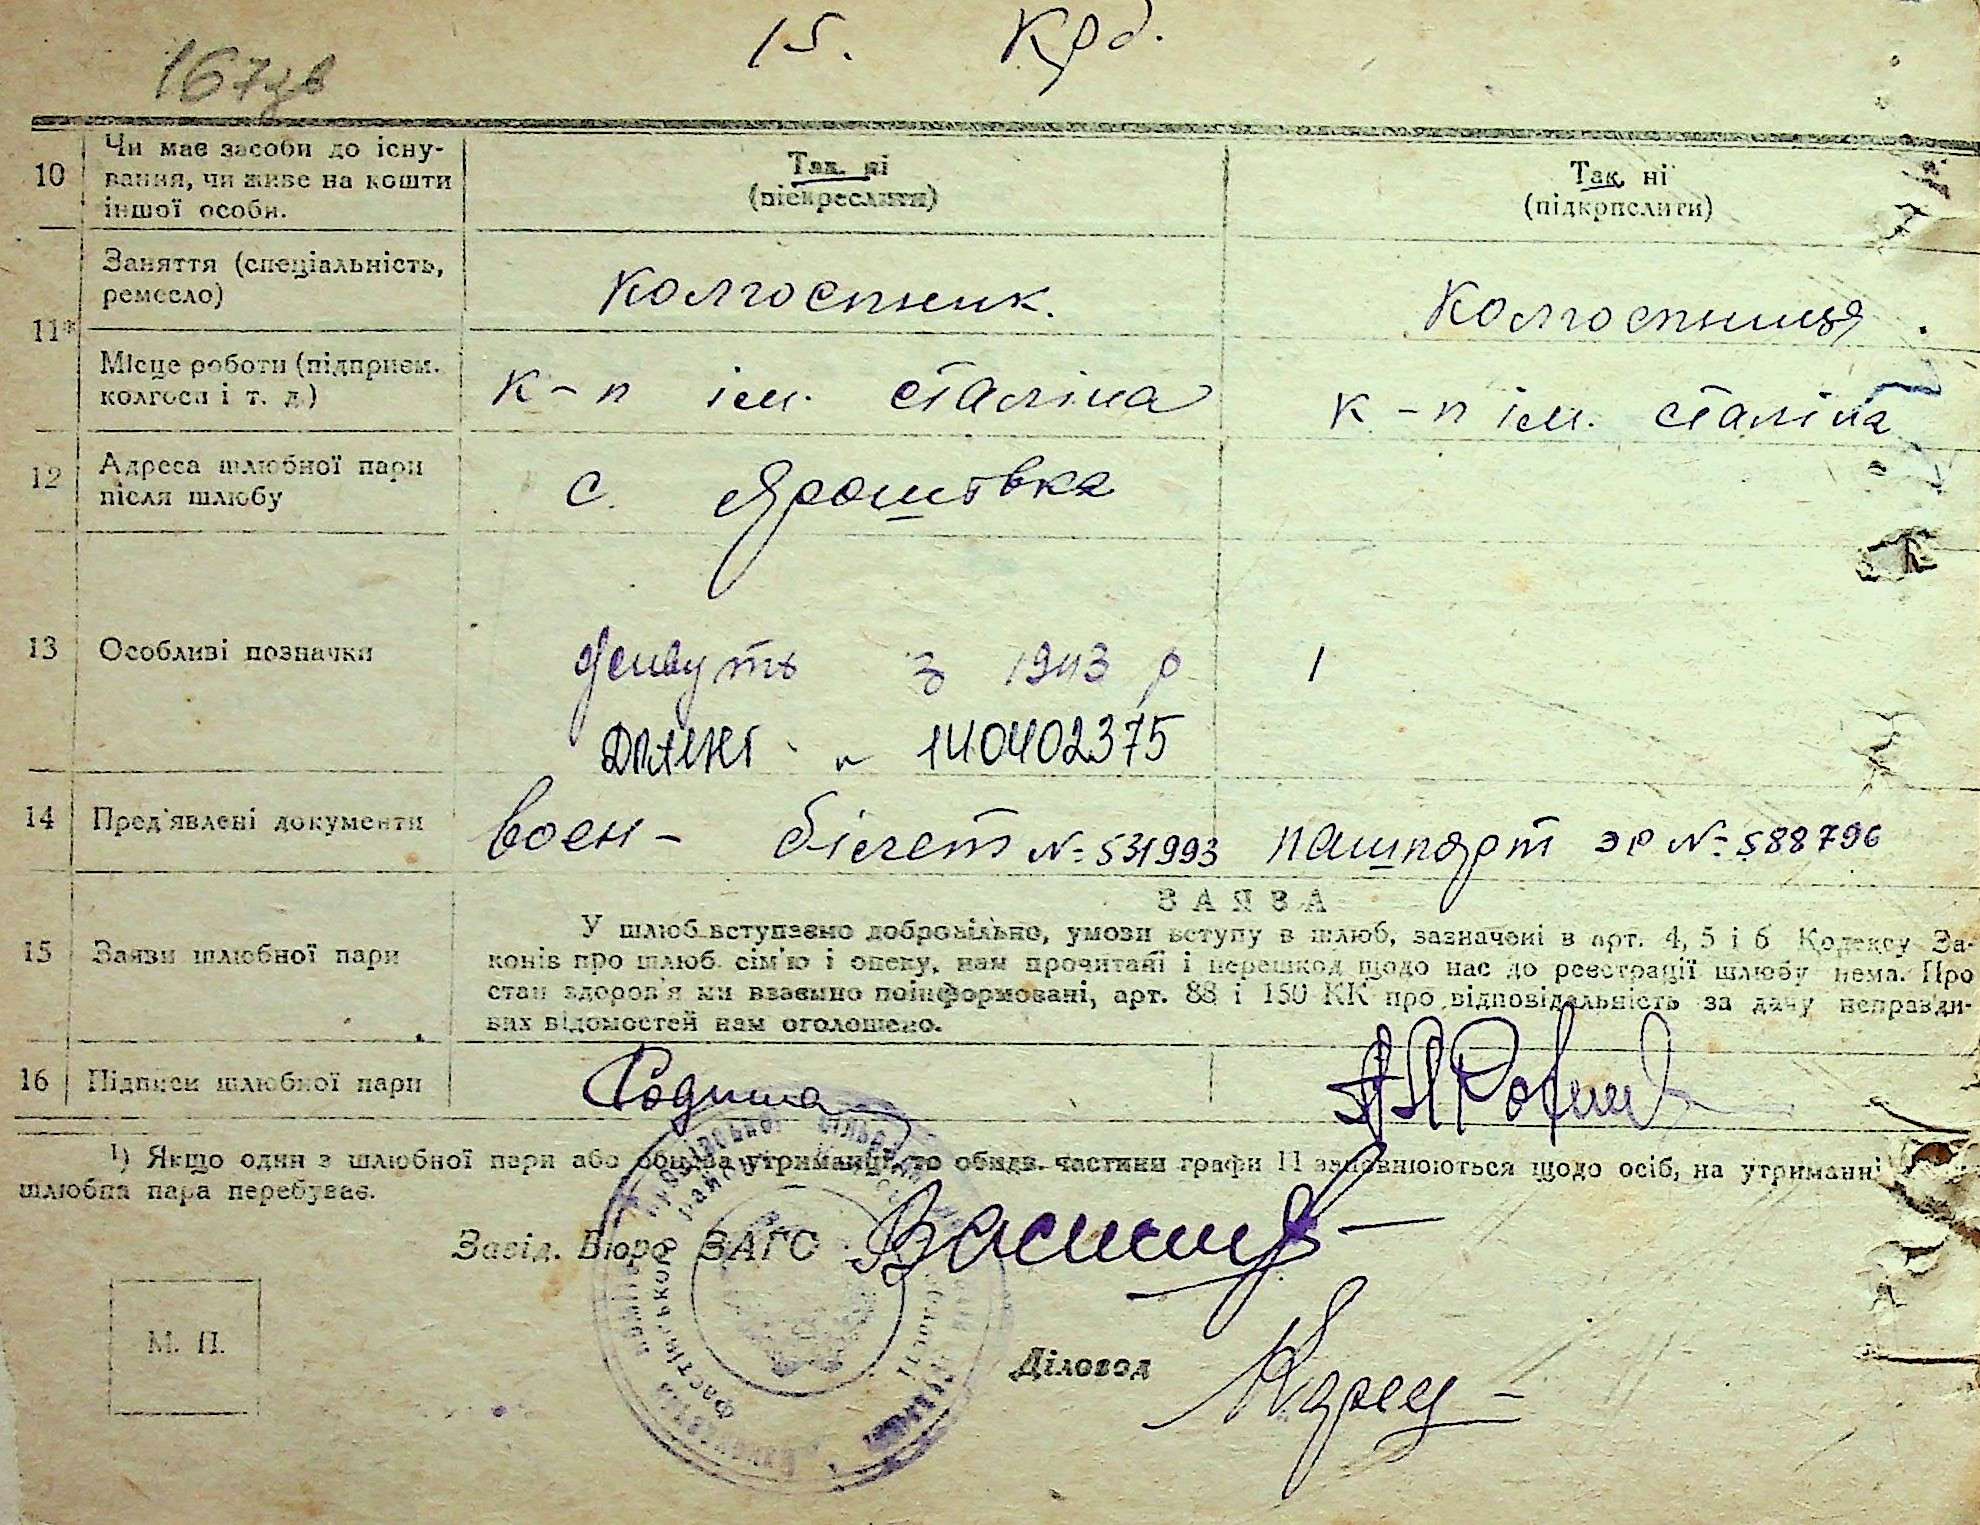 15. Крб.
167
10 Чи має засоби до існу-
вання, чи живе на кошти
іншої особи.
Так. ні
(підкреслити)
Так, ні
(підкрислити)
11* Заняття (спеціальність,
ремесло)
колгоспник.
Колгоспниця.
Місце роботи (підприєм.
колгосп і т. д.)
К-п ім. сталіна
к-п ім. сталіна
12 Адреса шлюбної пари
після шлюбу
с. Ярошівка
13 Особливі позначки
живуть з 1943 р
140402375
14 Пред'явлені документи
воен- білет №531993
пашпорт ЭР №588796
15 Заяви шлюбної пари
ЗАЯВА
У шлюб вступаємо добровільно, умови вступу в шлюб, зазначені в арт. 4, 5 і 6 Кодексу За-
конів про шлюб. сім'ю і опеку, нам прочитані і перешкод щодо нас до реєстрації шлюбу нема. Про
стан здоров'я ми взаємно поінформовані, арт. 88 і 150 КК про відповідальність за дачу неправди-
вих відомостей нам оголошено.
16 Підписи шлюбної пари
¹) Якщо один з шлюбної пари або обидва утриманці, то обидві частини графи 11 заповнюються щодо осіб, на утриманні
шлюбна пара перебуває.
Завід. Бюро ЗАГС
М. П.
Діловод